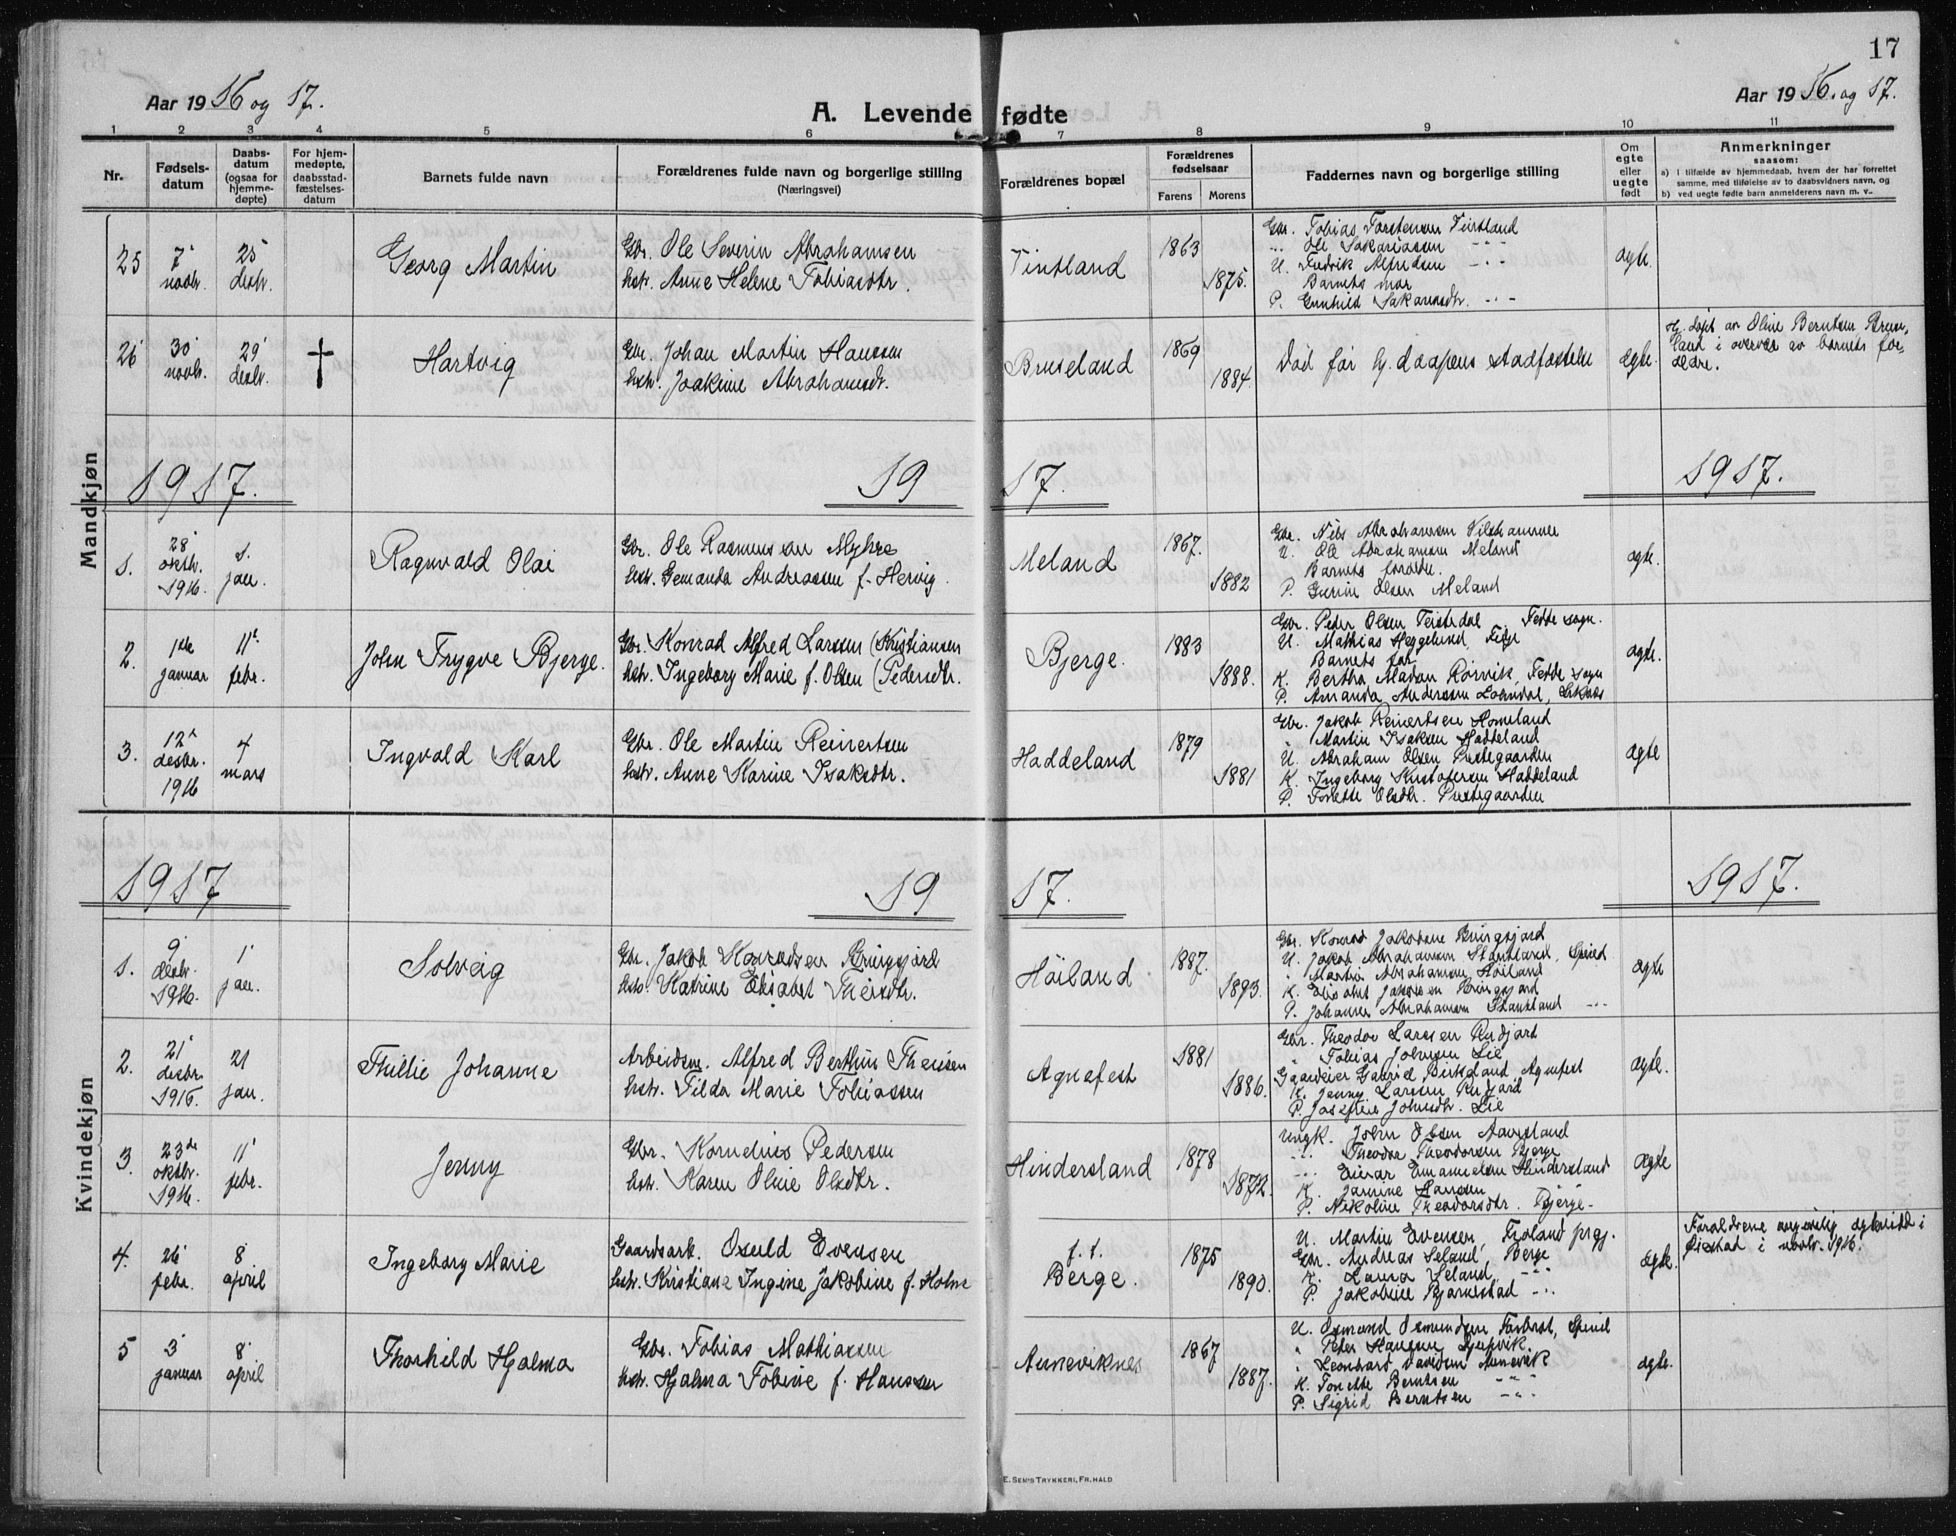 17
Aar 1916 og 17.
A. Levende fødte
Aar 1916 og 17.
1 2 3 4 5 6 7 8 9 10 11
Nr.
Fødselsdatum
Daabsdatum (ogsaa for hjemmedøpte)
For hjemmedøpte, daabsstadfæstelsesdatum
Barnets fulde navn
Forældrenes fulde navn og borgerlige stilling
(Næringsvei)
Forældrenes bopæl
Forældrenes fødselsaar
Farens Morens
Faddernes navn og borgerlige stilling
Om egte eller uegte født
Anmerkninger
saasom:
a) I tilfælde av hjemmedaab, hvem der har forrettet samme, med tilføielse av to daabsvidners navn, og
b) ved uegte fødte barn anmelderens navn m. v.
Mandkjøn
25 7 novbr. 25 desbr. Georg Martin
Gbr. Ole Severin Abrahamsen
hstr. Anne Helene Tobiasdtr.
Vintland 1863 1875.
Gbr. Tobias Torstensen Vintland
" Ole Sakariassen
U. Fredrik Alfredsen
Barnets mor
P. Gunhild Sakariasdtr.
ægte.
26 30 novbr. 29 desbr. † Hartvig
Gbr. Johan Martin Hanssen
hstr. Joakine Abrahamsdr.
Bruseland 1869 1884.
Død før hj. daapens stadfæstelse
ægte.
Hj. døpt av Oline Berntsen Bruseland i overvær av barnets forældre.
1917. 1917. 1917.
1. 28 oktbr. 1916. 1. jan. Ragnvald Olai
Gbr. Ole Rasmussen Myhre
hstr. Gemanda Andreassen f. Hervig.
Meland 1867. 1882
Gbr. Nils Abrahamsen
U. Ole Abrahamsen Meland
Barnets forældre.
P. Gurine Olsen Meland
ægte.
2. 1ste januar 11te febr. John Trygve Bjerge.
Gbr. Konrad Alfred Larssen (Kristiansen
hstr. Ingeborg Marie f. Olsen (Pedersdtr.
Bjerge. 1883 1888.
Gbr. Peder Olsen Teistedal, Fedde sogn.
U. Mathias Heggelund,
Barnets far
K. Bertha Madsen Rørvik, Fedde sogn
P. Amanda Andersen
ægte.
3. 12te desbr. 1916 4 mars Ingvald Karl
Gbr. Ole Martin Reinertsen
hstr. Anne Karine Isaksdtr.
Haddeland 1879 1881
Gbr. Jakob Reinertsen Homeland
" Martin Isaksen Haddeland
U. Abraham Olsen Prestegaarden
K. Ingeborg Kristofersen Haddeland
P. Tonette Olsdtr. Prestegaarden
ægte
Kvindekjøn
1917 1917. 1917.
1. 9 desbr. 1916. 1 jan. Solveig
Gbr. Jakob Konradsen Kringsjord
hstr. Katrine Elisabet Theisdtr.
Høiland 1887. 1893.
Gbr. Konrad Jakobsen Kringsjord
U. Jakob Abrahamsen Stautland, Spind
" Martin Abrahamsen Høiland
K. Elisabet Jakobsen Kringsjord
P. Johanne Abrahamsen Stautland
ægte
2. 21 desbr. 1916. 21 jan. Thillie Johanne
Arbeidsm. Alfred Berthin Theisen
hstr. Tilda Marie Tobiassen
Agnefest 1881 1886.
Gbr. Theodor Larsen Rudjord
" Tobias Johnsen Lie
Gaardeier Gabriel Birkeland Agnefest
K. Jenny Larsen Rudjord
P. Josefine Johnsdtr. Lie
ægte.
3. 23de oktbr. 1916. 11 febr. Jenny
Gbr. Kornelius Pedersen
hstr. Karen Oline Olsdtr.
Hindersland 1878 1872.
Ungk. John Olsen
" Theodor Theodorsen Bjerge
" Einar Emanuelsen Hindersland
K. Jannine Hansen
P. Nikoline Theodorsdtr. Bjerge
ægte
4. 26 febr. 8 april Ingeborg Marie
Gaardsarb. Osuld Evensen
hstr. Kristiane Ingine Jakobine f. Holme
f. t. Berge. 1875 1890.
U. Martin Evensen, Froland prgj.
Gbr. Andreas Seland, Berge
K. Laura Seland,
P. Jakobine Bjørnestad
ægte.
Forældrene angivelig egteviet i Øiestad i novbr. 1916.
5 3 januar 8 april Thorhild Hjalma
Gbr. Tobias Mathiassen
hstr. Hjalma Tobine f. Hanssen
Anneviknes 1867 1887.
U. Osmund Osmundsen Spind
" Peter Hansen
" Leonhard Davidsen Annevik
K. Tonette Berntsen
P. Sigrid Berntsen
ægte.
E. SEM'S TRYKKERI, FR.HALD